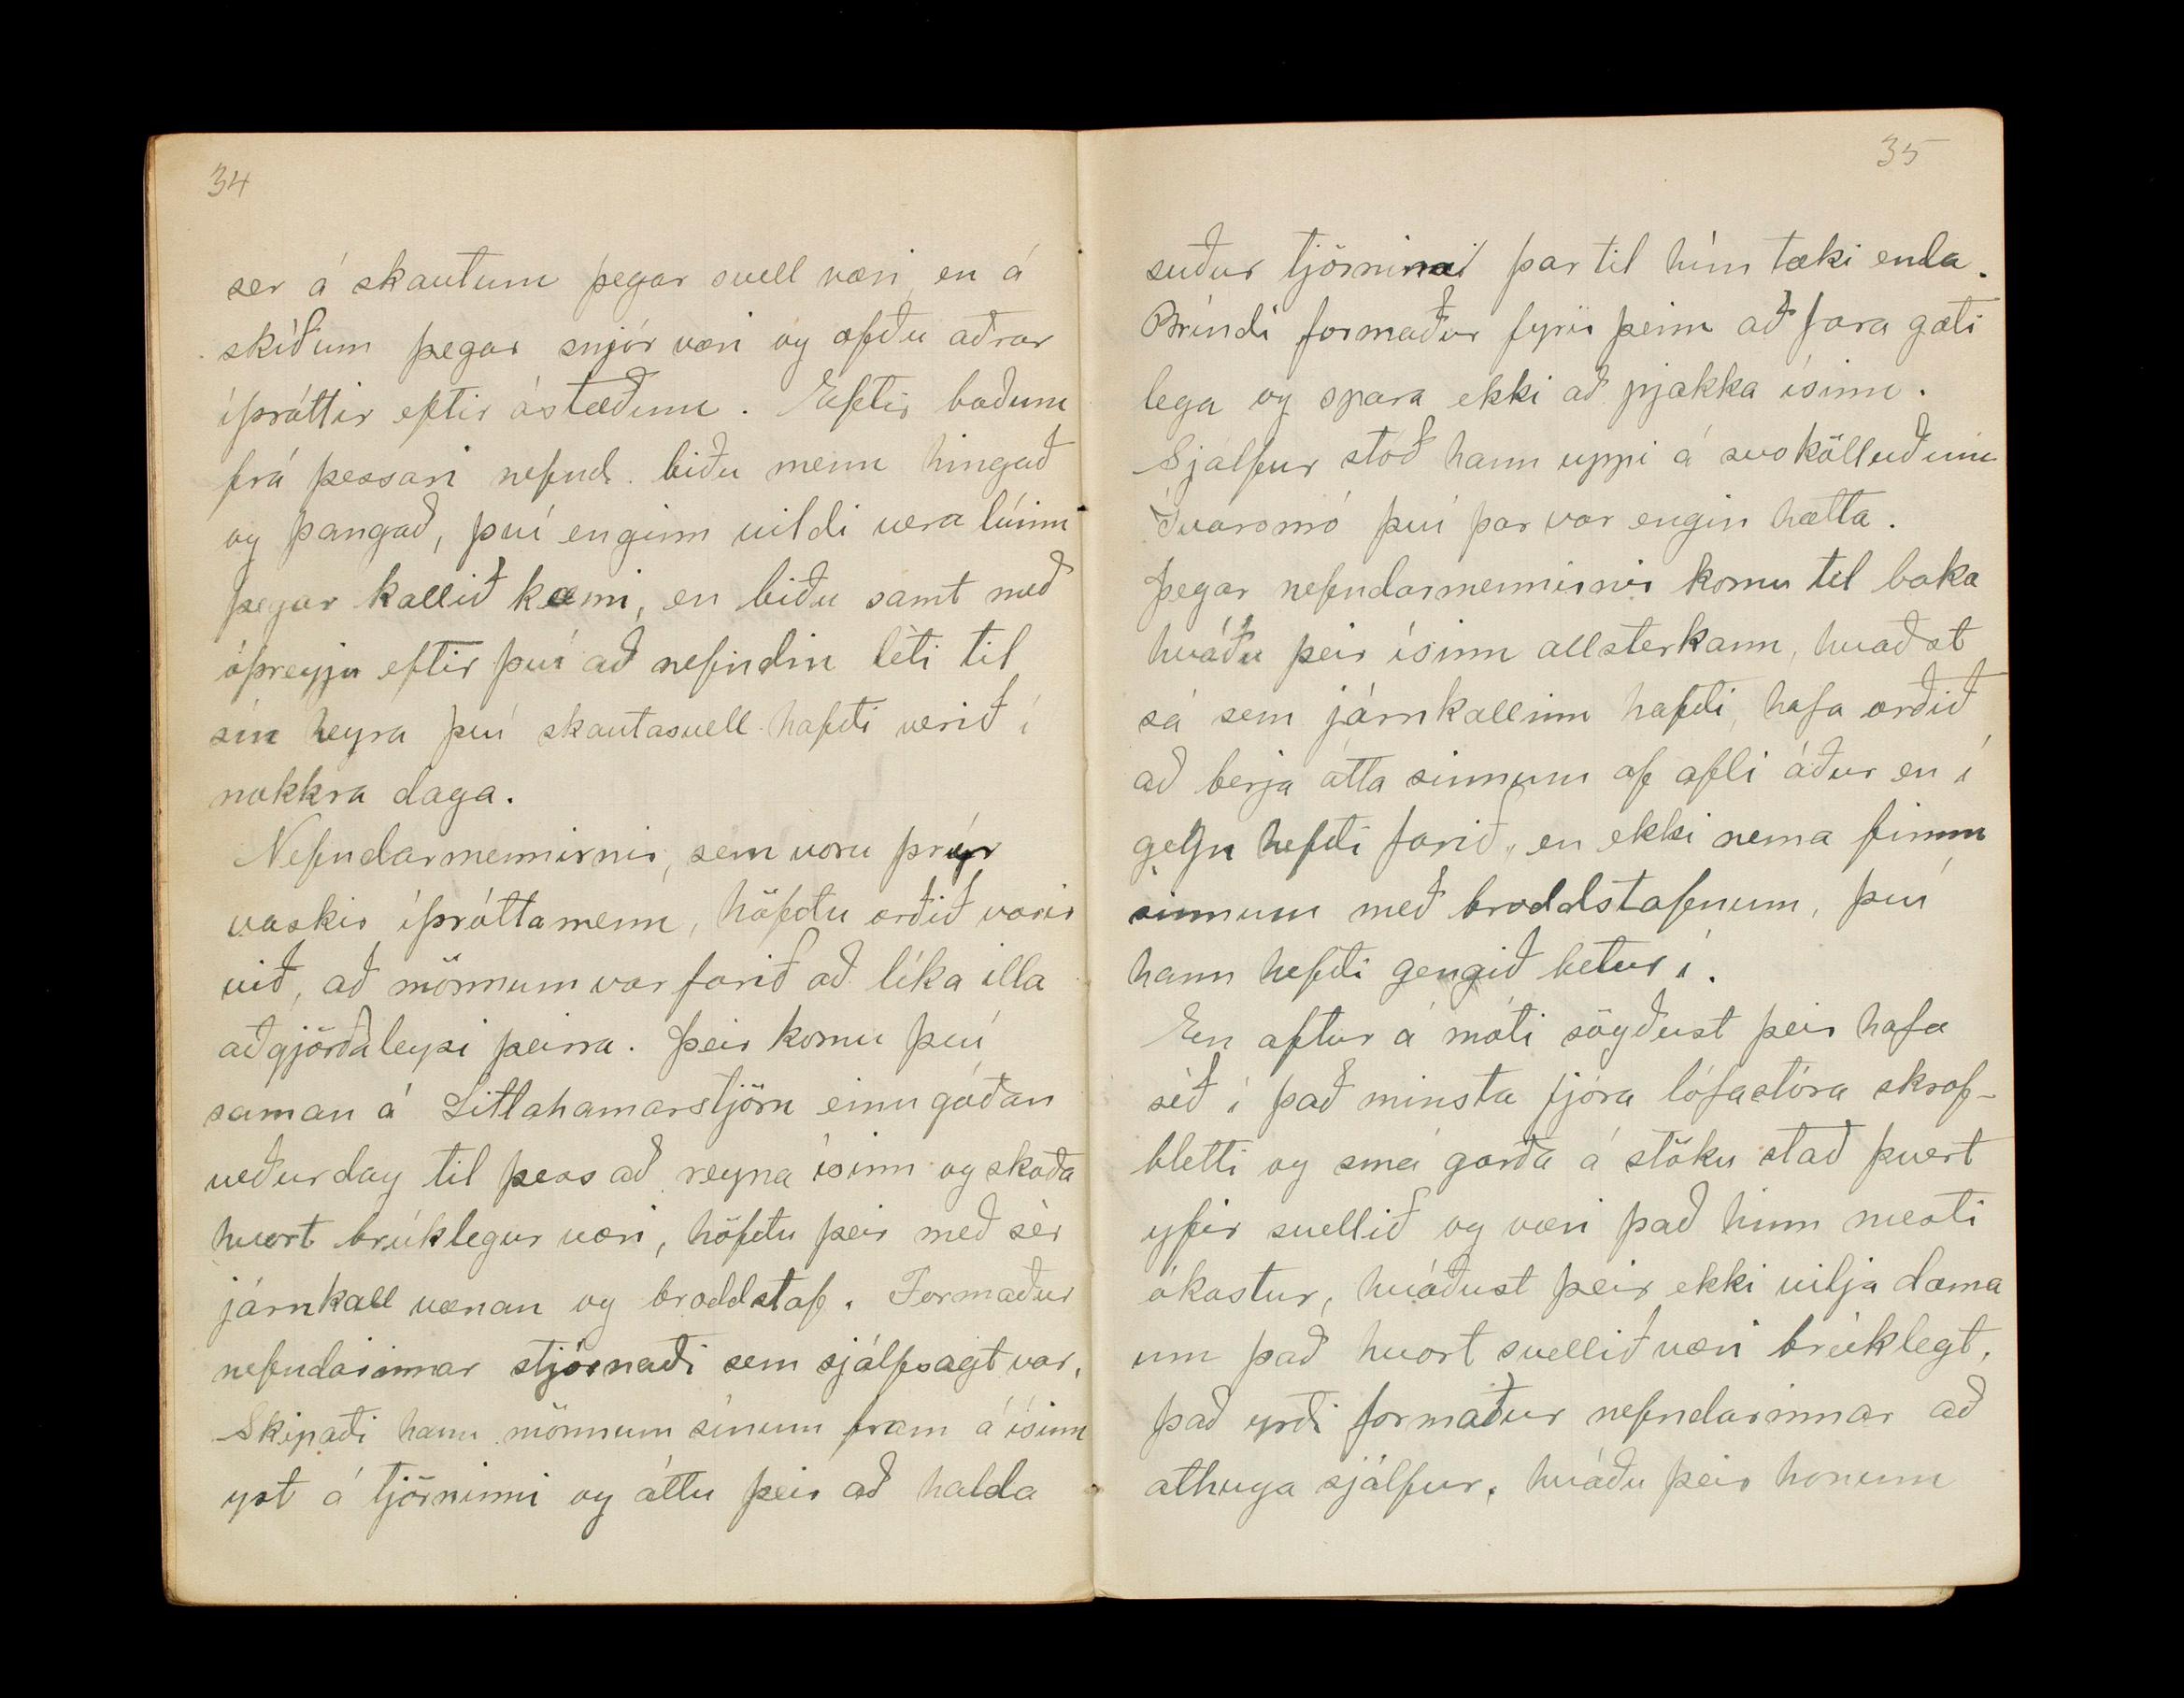 34
ser á skautum þegar svell væri en á
skíðum þegar snjór væri og æfðu aðrar
íþróttir eftir ástæðum. Eftir boðum
frá þessari nefnd biðu menn hingað
og þangað, því enginn vildi vera lúinn
þegar kallið kæmi, en biðu samt með
óþreyju eftir því að nefndin léti til
sín heyra því skautasvell hafði verið í
nokkra daga.
Nefndarmennirnir, sem voru þrýr
vaskir íþróttamenn, höfðu orðið varir
við, að mönnum var farið að líka illa
aðgjörðaleysi þeirra. Þeir komu því
saman á Litlahamarstjörn einn góðan
veðurdag til þess að reyna ísinn og skoða
hvort brúklegur væri, höfðu þeir með sèr
járnkall vænan og broddstaf. Formaður
nefndarinnar stjórnaði sem sjálfsagt var.
Skipaði hann mönnum sínum fram á ísinn
yst á tjörninni og áttu þeir að halda
35
suður tjörnina þar til hún tæki enda.
Brindi formaður fyrir þeim að fara gæti
lega og spara ekki að pjakka ísinn.
Sjalfur stóð hann uppi á svokölluðum
Kvarsmó því þar var engin hætta.
Þegar nefndarmennirnir komu til baka
kváðu þeir ísinn allsterkann, kvaðst
sá sem járnkallinn hafði, hafa orðið
að berja átta sinnum af afli áður en í
gegn hefði farið, en ekki nema fimm
sinnum með broddstafnum, því
hann hefði gengið betur í.
En aftur á móti sögðust þeir hafa
séð í það minsta fjóra lófastóra skrof-
bletti og smá garða á stöku stað þvert
yfir svellið og væri það hinn mesti
ókostur, kváðust þeir ekki vilja dæma
um það hvort svellið væri brúklegt,
það yrði formaður nefndarinnar að
athuga sjálfur, kváðu þeir honum